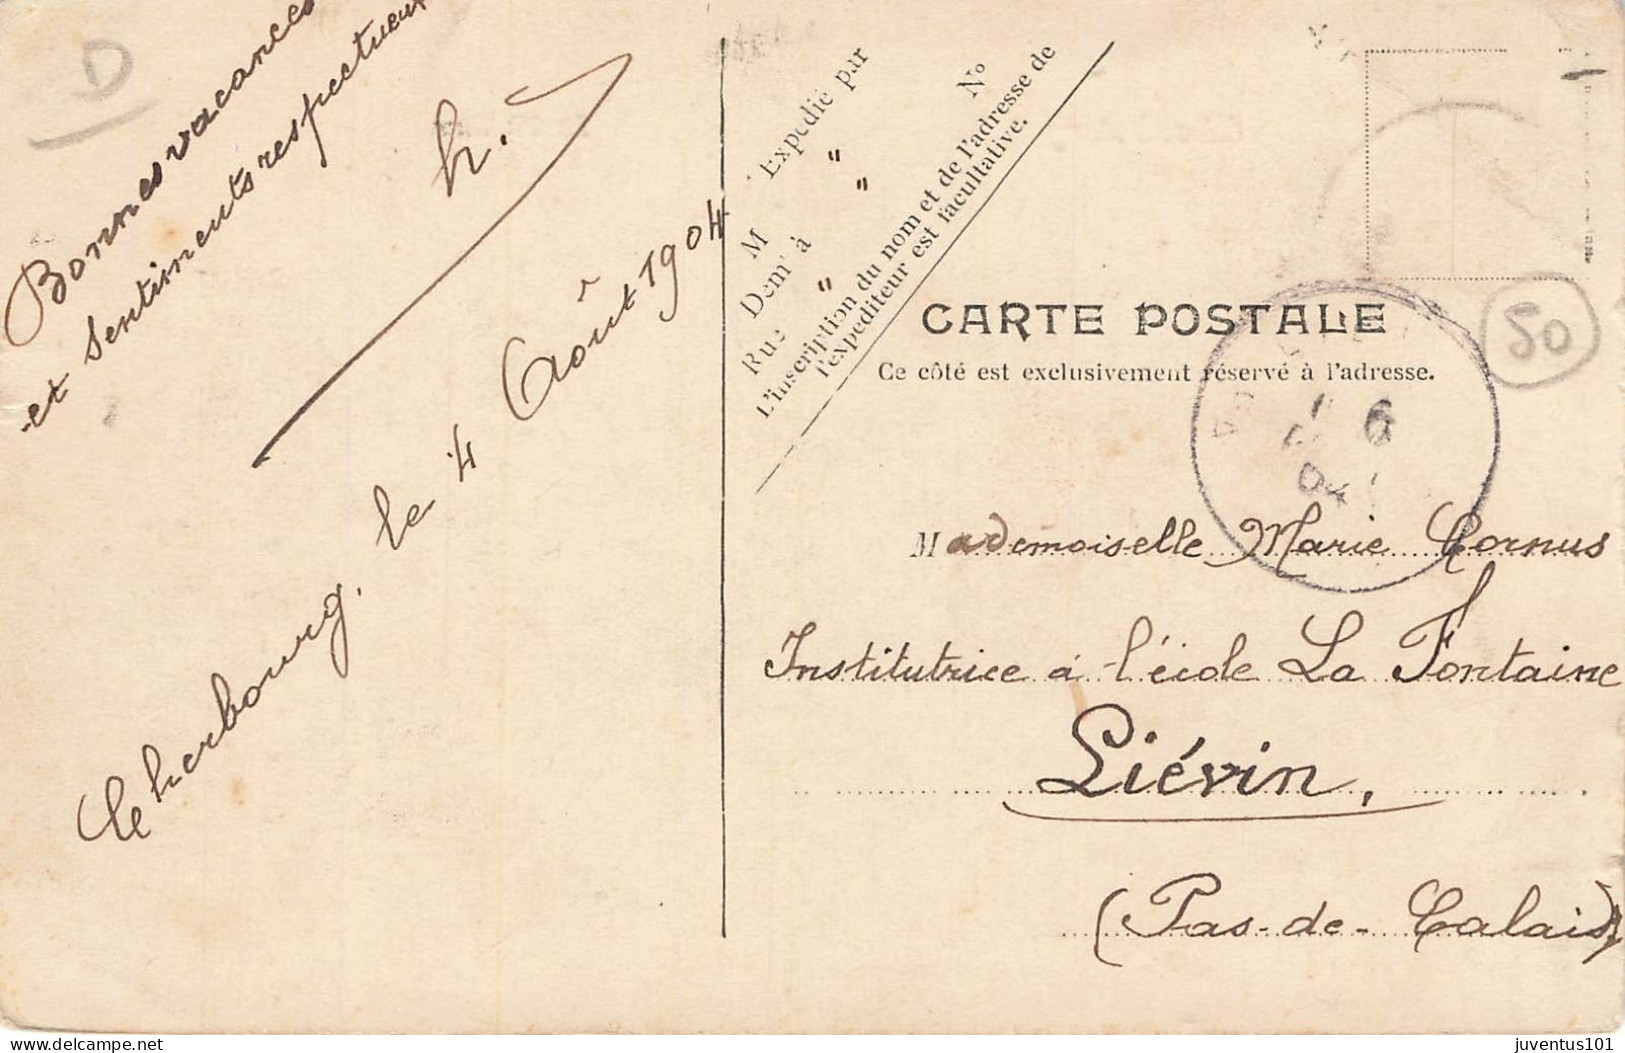 D
Bonnes vacances
et sentiments respectueux
h.
Cherbourg, le 4 Août 1904
Expédié par
M " Nº
Rue "
Demt à "
L'inscription du nom et de l'adresse de
l'expéditeur est facultative.
CARTE POSTALE
Ce côté est exclusivement réservé à l'adresse.
50
6
04
Mademoiselle Marie Cornus
Institutrice à l'école La Fontaine
Liévin,
(Pas-de-Calais)
juventus101